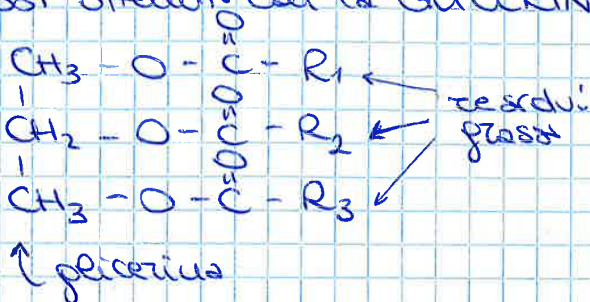 CON LA GLICERIN
O
CH3 - O - C - R1
O
CH2 - O - C - R2
O
CH3 - O - C - R3
residui
grassi
glicerina